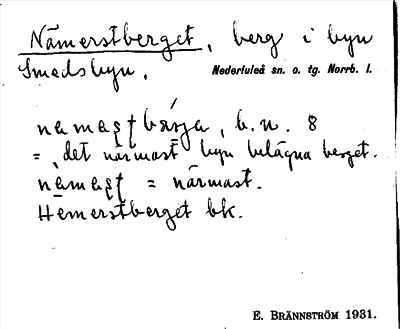 Nämerstberget, berg i byn
Smedsbyn, Nederluleå sn. o. tg. Norrb. l.
namast bärja, b.n. 8
= det närmast byn belägna berget.
namast = närmast.
Hemerstberget bk.
E. BRÄNNSTRÖM 1931.